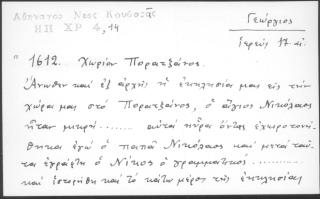 Ἀθηναγος Νεος Κουβαρᾶς
ΗΠ ΧΡ 4, 14
Γεώργιος
ἱερεύς 17 αἰ.
" 1612. Χωρίον Πορατζάνος.
Ἄνωθεν καὶ ἐξ ἀρχῆς ἡ ἐκκλησία μας εἰς τὴν
χώρα μας στὸ Πορατζάνος, ὁ ἅγιος Νικόλαος
ἦταν μικρή........ αὐταὶ ὄντας ἐχειροτονή-
θηκα ἐγὼ ὁ παπᾶ Νικόλαος καὶ μετὰ ταῦ-
τα ἐγράφτη ὁ Νίκος ὁ γραμματικὸς ...........
καὶ ἱστορήθη καὶ τὸ κάτω μέρος τῆς ἐκκλησίας